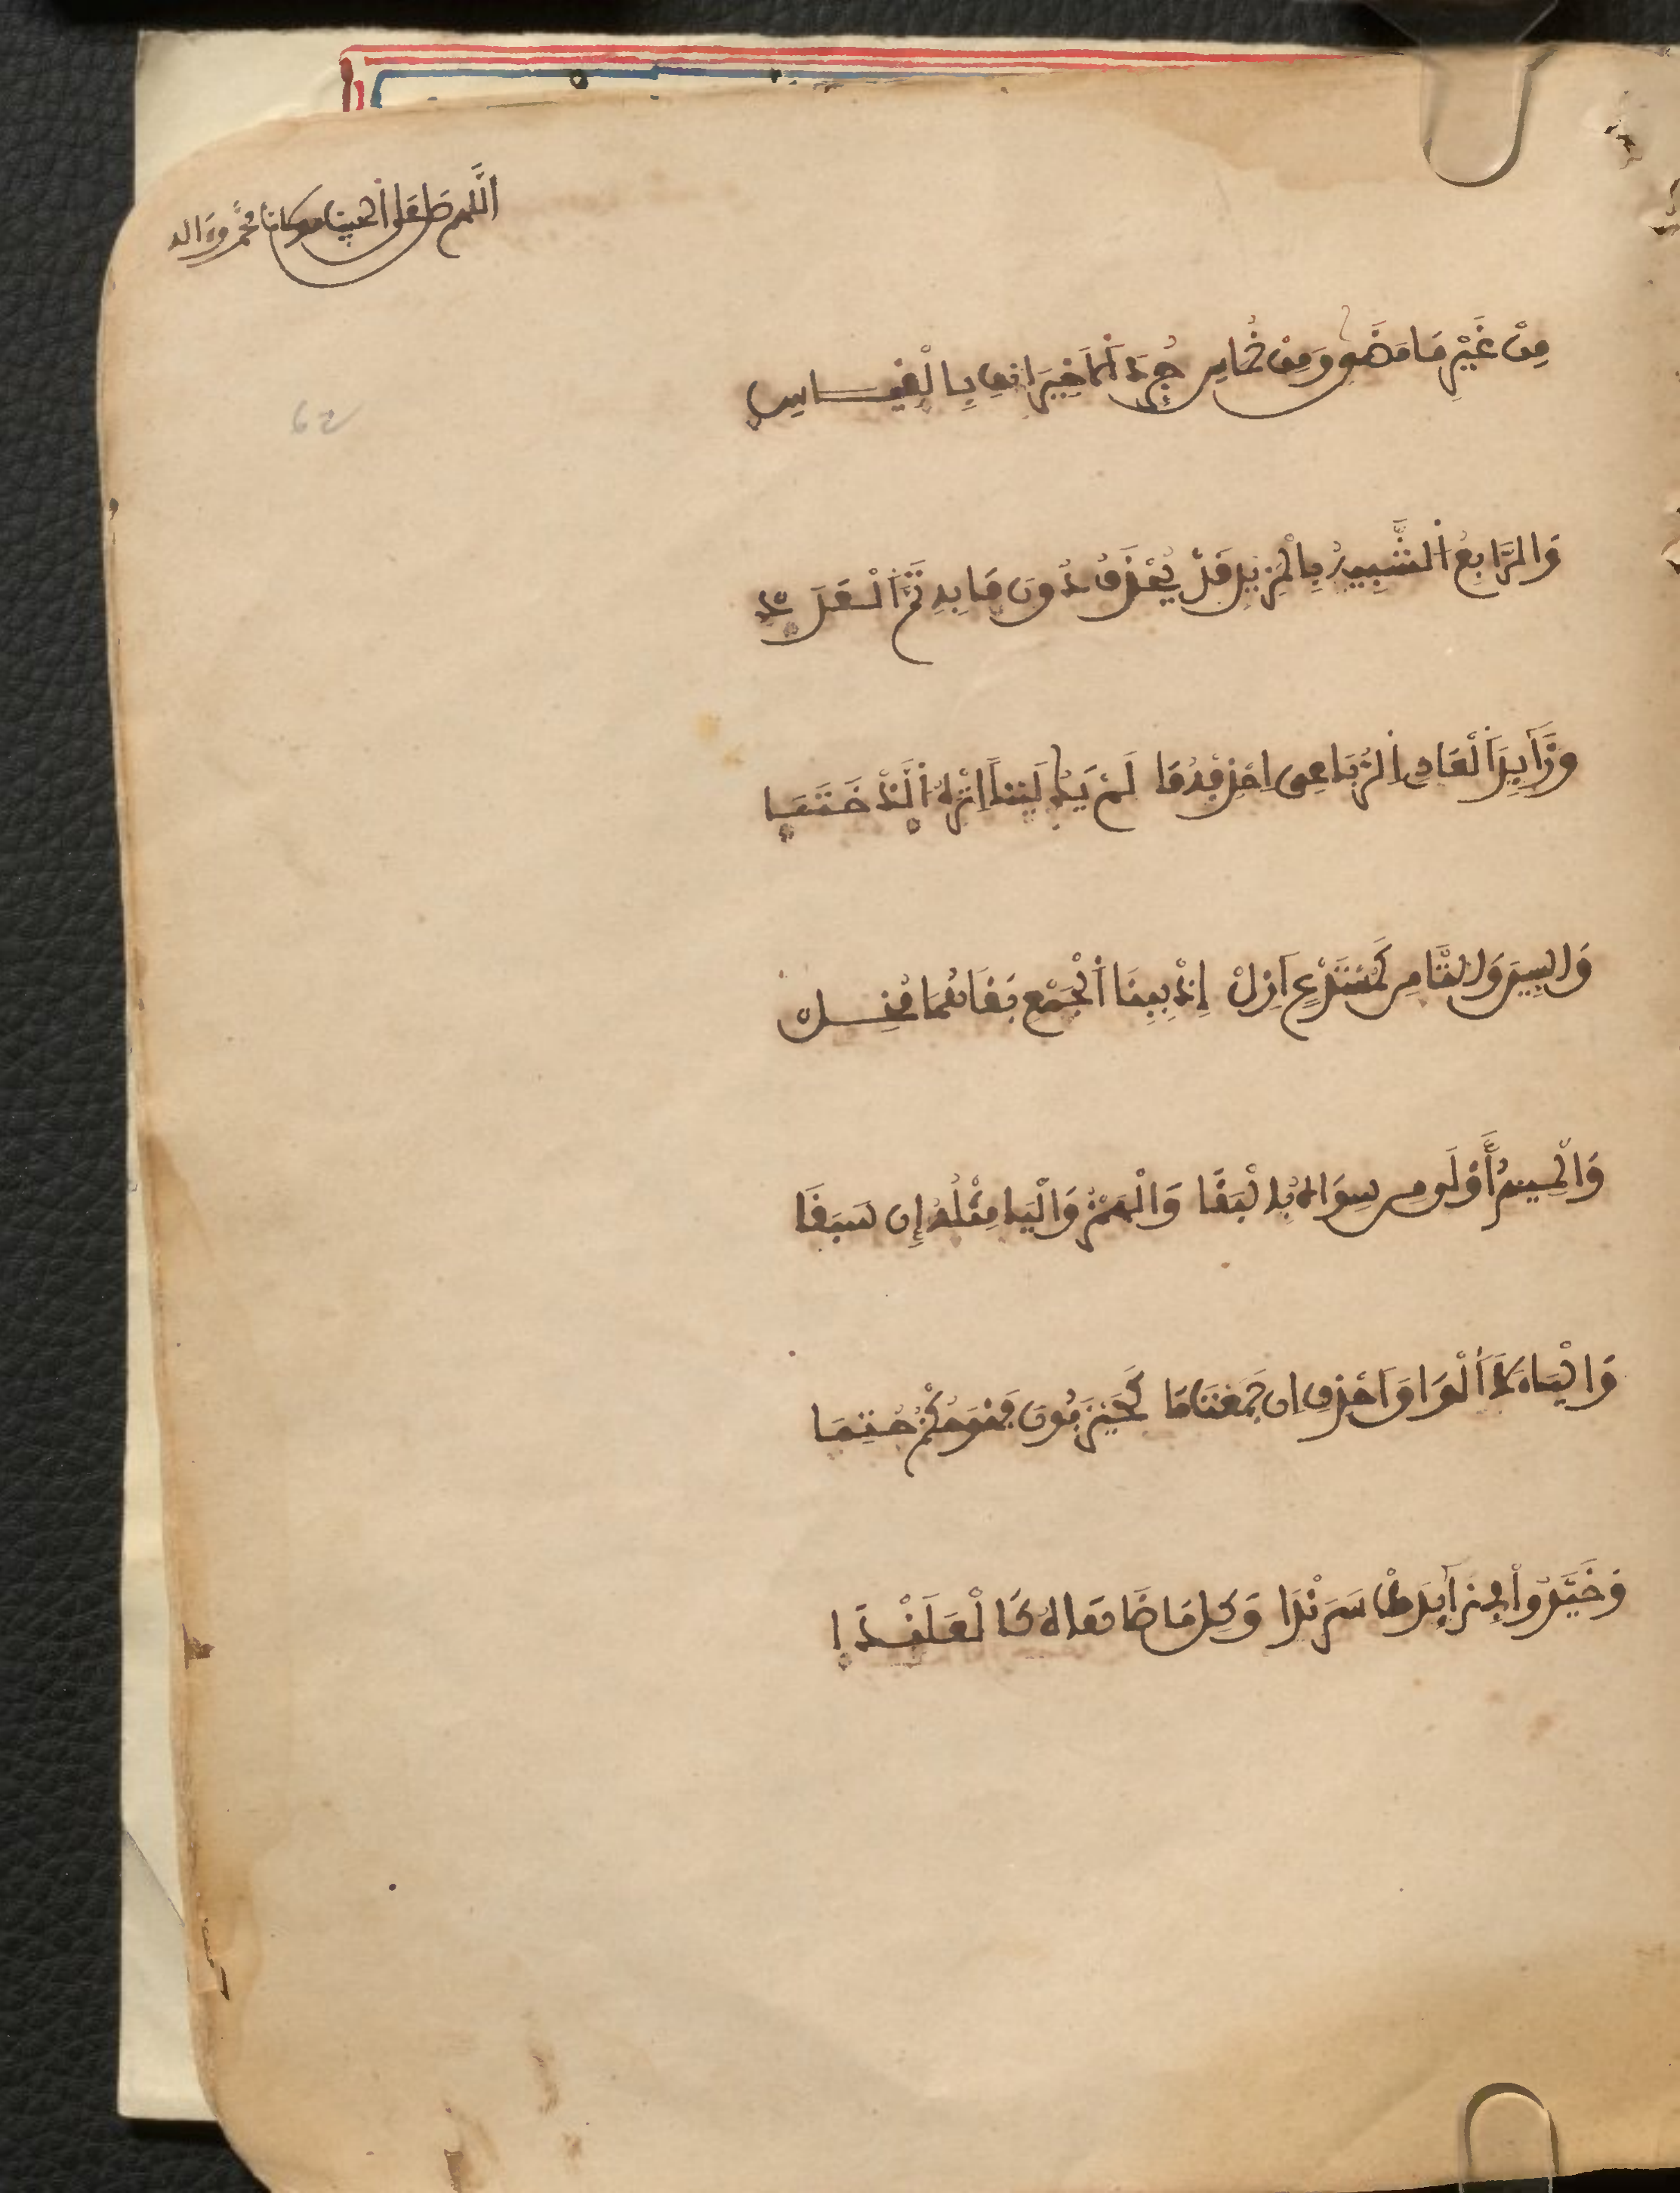 اللهم صل على نبينا ومولانا محمد وءاله
62
مِنْ غَيْرِ مَا مَضَى وَمِنْ خُمَاسِي جُرِّدَ الَاخِيرَ انْفِ بِالْقِيَاسِ
وَالرَّابِعُ الشَّبِيهُ بِالْمَزِيدِ قَدْ يُحْذَفُ دُونَ مَا بِهِ تَمَّ الْعَدَدْ
وَزَآيِدَ الْعَادِي الرُّبَاعِي احْذِفْهُ مَا لَمْ يَكُ لَيْنًا اِثْرَهُ الَّذْ خَتَمَا
وَالسِّينَ وَالتَّا مِنْ كَمُسْتَدْعٍ اَزِلْ إِذْ بِبِنَا الْجَمْعِ بَقَاهُمَا مُخِلْ
وَالْمِيمُ أَوْلَى مِنْ سِوَاهُ بِالْبَقَا وَالْهَمْزُ وَالْيَا مِثْلُهُ إِن سَبَقَا
وَالْيَاءَ لَا الْوَاوَ احْذِفِ اِن جَمَعْتَ مَا كَحَيْزَبُونَ فَهْوَ حُكْمٌ حُتِمَا
وَخَيَّرُواْ فِي زَآيِدَيْ سَرَنْدَا وَكُلِّ مَا ضَاهَاهُ كَالْعَلَنْدَا